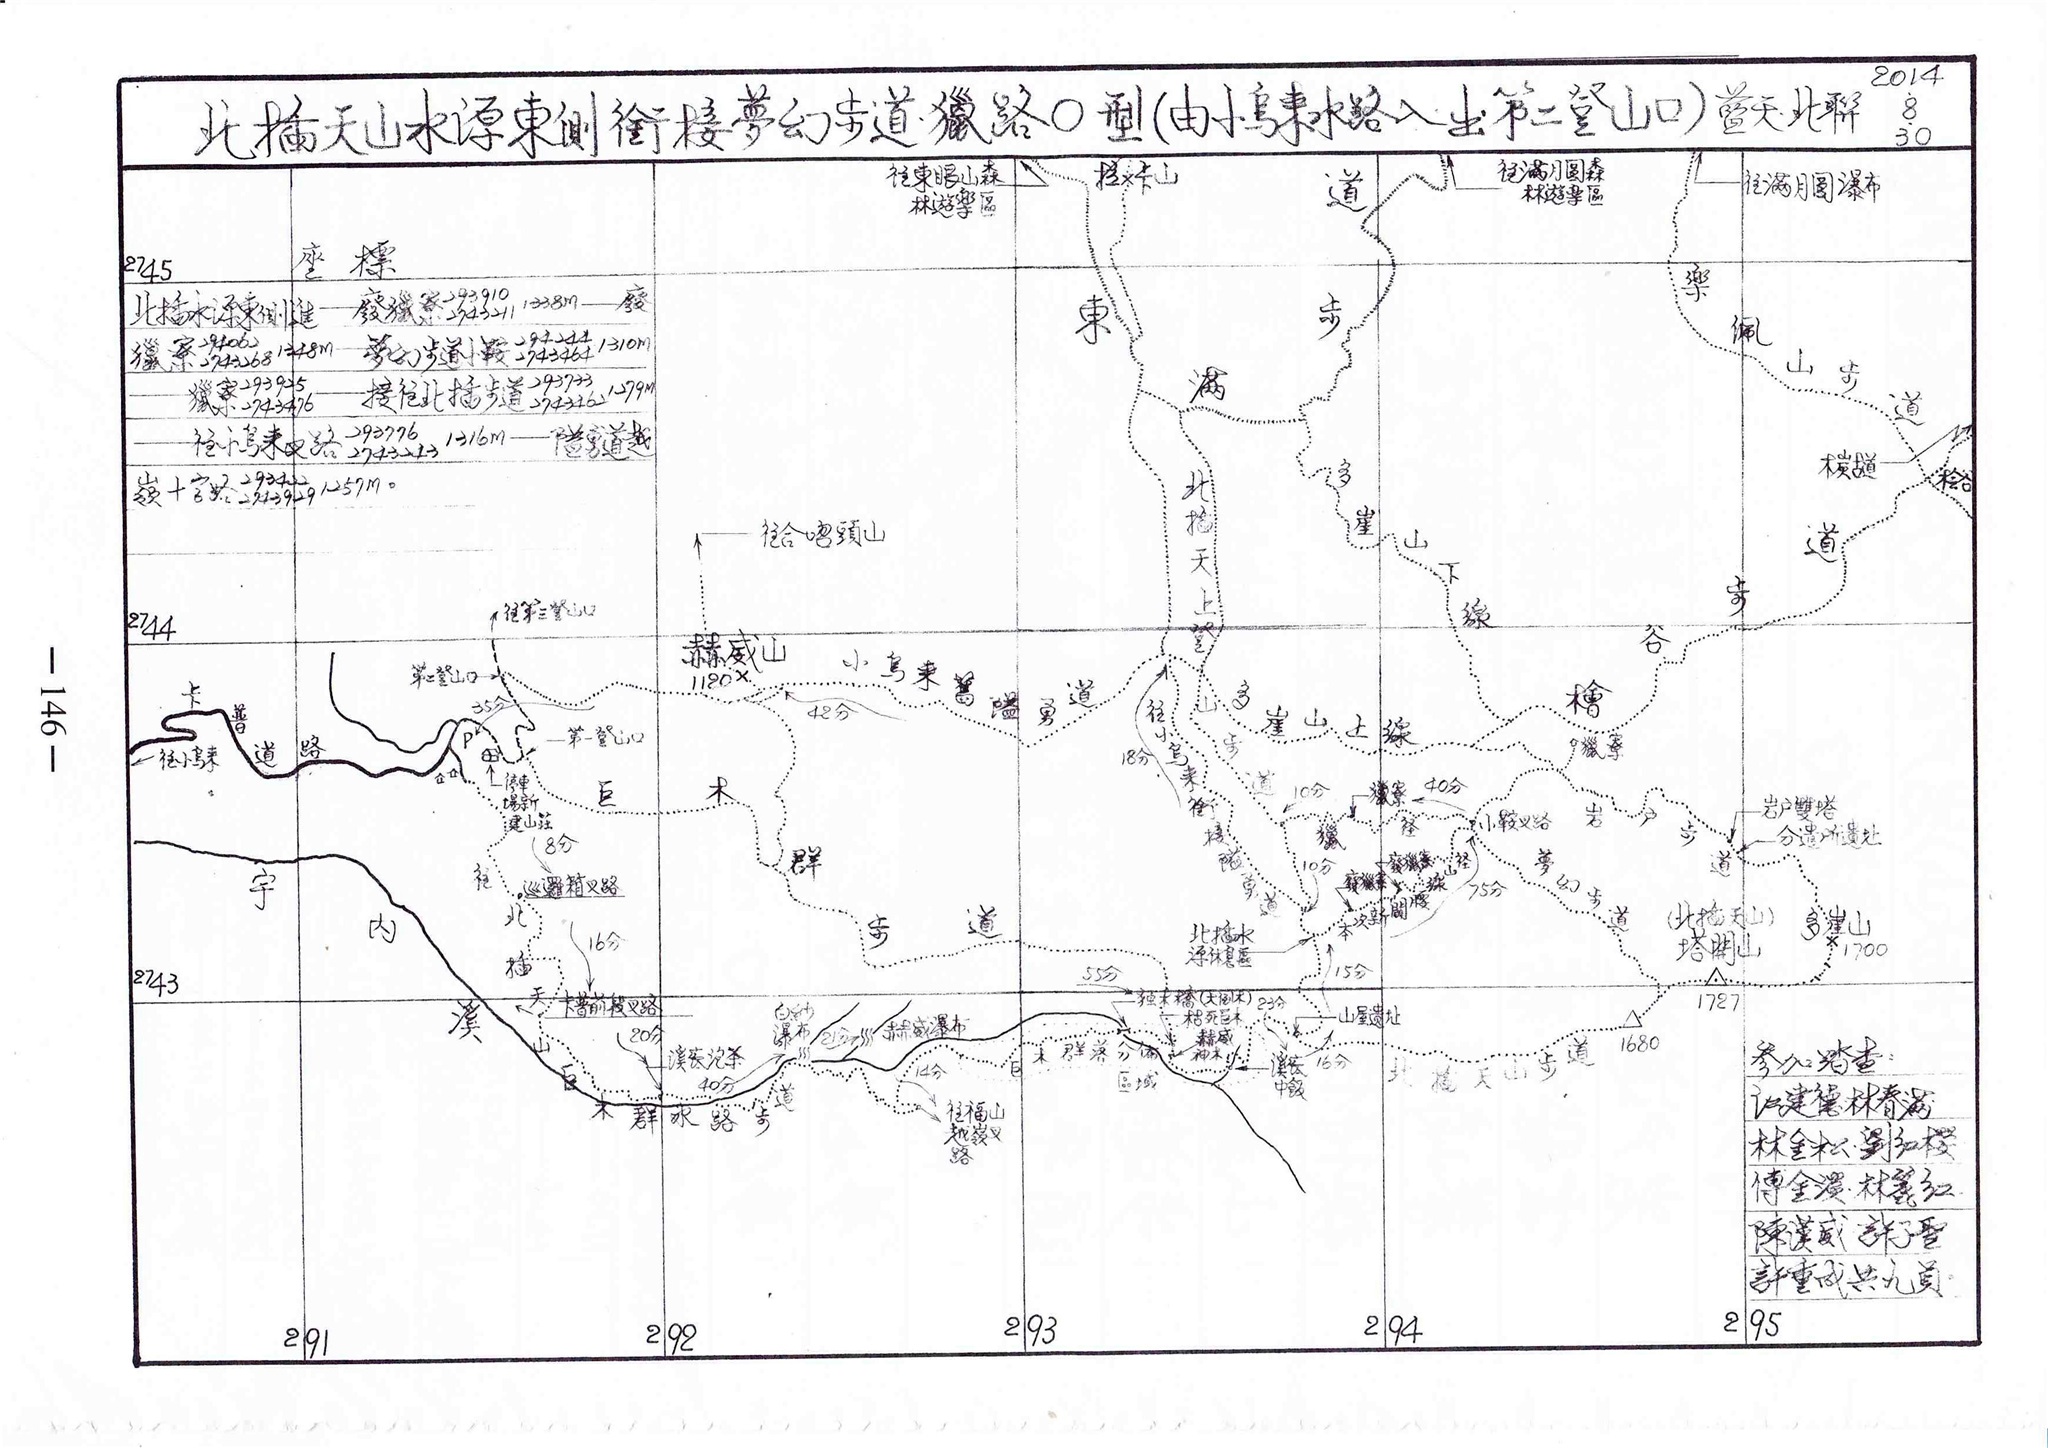 北插天山水源東側銜接夢幻步道獵路O型(由小烏來水路入出第二登山口)藍天.北聯
2014
8
30
往東眼山森
林遊樂區
拉卡山
往滿月圓森
林遊樂區
往滿月圓瀑布
2745
座標
北插水源東側進——廢獵寮 293910 2743211 1338M——廢
獵寮 294062 2743268 1348M——夢幻步道小鞍 294244 2743464 1310M
——獵寮 293925 2743476——接往北插步道 293733 2743462 1279M
——往小烏來叉路 293776 2743243 1316M——隘勇道越
嶺十字路 293422 2743929 1257M。
東滿步道
樂佩山步道
橫嶺古道
檜谷
北插天山步道
多崖山下線
檜谷步道
往合哈頭山
2744
往第三登山口
第二登山口
赫威山
1180
小烏來舊隘勇道
42分
35分
卡普道路
往小烏來
P
第一登山口
停車
場新
建山莊
8分
巡邏箱叉路
巨木群步道
往北插天山
16分
卡普前鞍叉路
18分
往小烏來銜接隘勇道
多崖山上線
獵寮
10分
獵寮
40分
獵徑
小鞍叉路
岩戶步道
岩戶雙塔
分遣所遺址
10分
廢獵寮
廢獵寮
本次新開
75分
夢幻步道
北插水
源休息區
(北插天山)
塔開山
1727
多崖山
1700
1680
2743
宇內溪
20分
溪底泡茶
40分
白紗
瀑布
21分
赫威瀑布
巨木群水路步道
14分
往福山
越嶺叉
路
55分
獨木橋(大倒木)
枯死巨木
赫威
神木
巨木群落分佈
區域
23分
溪底
中飯
16分
15分
山屋遺址
北插天山步道
參加踏查:
江建德.林春滿.
林金松.劉紅櫻
傅金漢.林麗紅.
陳漢威.許子聖
許重成共九員.
291
292
293
294
295
—146—